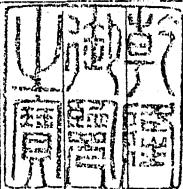 乾隆
御覽
之寶